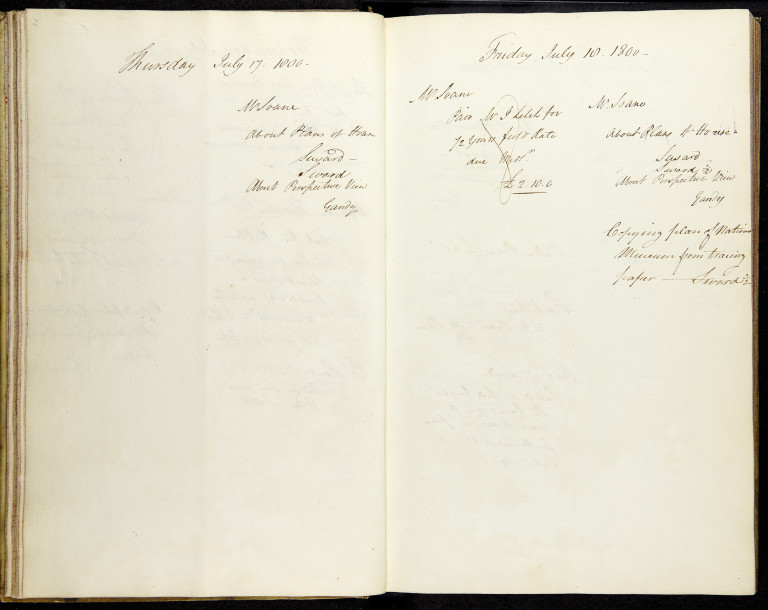 Thursday July 17 1800 -
Mr Soane
About Plans of House
Seward -
Sword
About Perspective View
Gandy
Friday July 18 1800 -
Mr Soane
Paid Mr J for
1/2 Years Rate
due
£ 2.10.0
Mr Soane
About Plans of House
Seward
Sword 1/2
About Perspective View
Gandy
Copying plan of National
Museum from tracing
paper - Sword 1/2